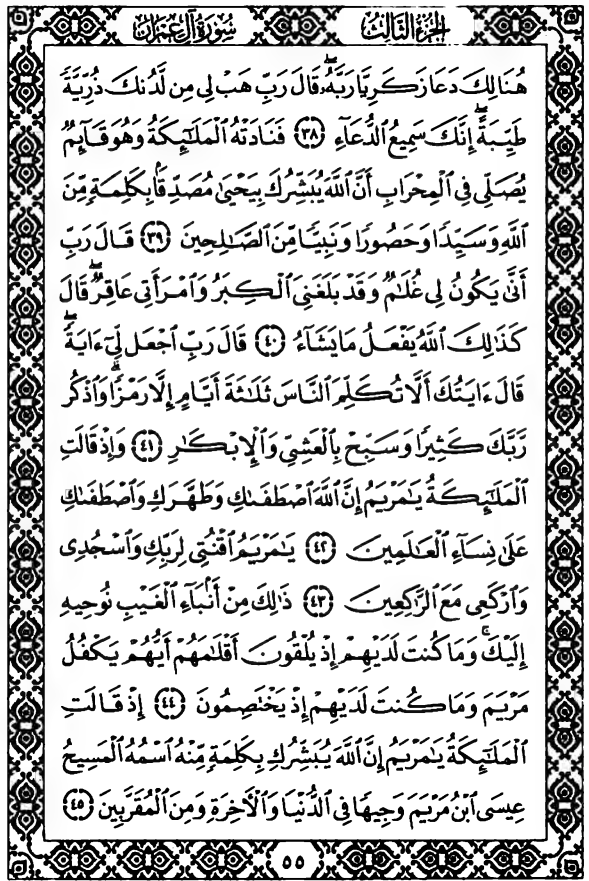 الجزء الثالث سورة آل عمران
هُنَالِكَ دَعَا زَكَرِيَّا رَبَّهُۥ ۖ قَالَ رَبِّ هَبْ لِى مِن لَّدُنكَ ذُرِّيَّةً
طَيِّبَةً ۖ إِنَّكَ سَمِيعُ ٱلدُّعَآءِ ﴿٣٨﴾ فَنَادَتْهُ ٱلْمَلَٰٓئِكَةُ وَهُوَ قَآئِمٌ
يُصَلِّى فِى ٱلْمِحْرَابِ أَنَّ ٱللَّهَ يُبَشِّرُكَ بِيَحْيَىٰ مُصَدِّقًۢا بِكَلِمَةٍ مِّنَ
ٱللَّهِ وَسَيِّدًا وَحَصُورًا وَنَبِيًّا مِّنَ ٱلصَّٰلِحِينَ ﴿٣٩﴾ قَالَ رَبِّ
أَنَّىٰ يَكُونُ لِى غُلَٰمٌ وَقَدْ بَلَغَنِىَ ٱلْكِبَرُ وَٱمْرَأَتِى عَاقِرٌ ۖ قَالَ
كَذَٰلِكَ ٱللَّهُ يَفْعَلُ مَا يَشَآءُ ﴿٤٠﴾ قَالَ رَبِّ ٱجْعَل لِّىٓ ءَايَةً ۖ
قَالَ ءَايَتُكَ أَلَّا تُكَلِّمَ ٱلنَّاسَ ثَلَٰثَةَ أَيَّامٍ إِلَّا رَمْزًا ۗ وَٱذْكُر
رَّبَّكَ كَثِيرًا وَسَبِّحْ بِٱلْعَشِىِّ وَٱلْإِبْكَٰرِ ﴿٤١﴾ وَإِذْ قَالَتِ
ٱلْمَلَٰٓئِكَةُ يَٰمَرْيَمُ إِنَّ ٱللَّهَ ٱصْطَفَىٰكِ وَطَهَّرَكِ وَٱصْطَفَىٰكِ
عَلَىٰ نِسَآءِ ٱلْعَٰلَمِينَ ﴿٤٢﴾ يَٰمَرْيَمُ ٱقْنُتِى لِرَبِّكِ وَٱسْجُدِى
وَٱرْكَعِى مَعَ ٱلرَّٰكِعِينَ ﴿٤٣﴾ ذَٰلِكَ مِنْ أَنۢبَآءِ ٱلْغَيْبِ نُوحِيهِ
إِلَيْكَ ۚ وَمَا كُنتَ لَدَيْهِمْ إِذْ يُلْقُونَ أَقْلَٰمَهُمْ أَيُّهُمْ يَكْفُلُ
مَرْيَمَ وَمَا كُنتَ لَدَيْهِمْ إِذْ يَخْتَصِمُونَ ﴿٤٤﴾ إِذْ قَالَتِ
ٱلْمَلَٰٓئِكَةُ يَٰمَرْيَمُ إِنَّ ٱللَّهَ يُبَشِّرُكِ بِكَلِمَةٍ مِّنْهُ ٱسْمُهُ ٱلْمَسِيحُ
عِيسَى ٱبْنُ مَرْيَمَ وَجِيهًا فِى ٱلدُّنْيَا وَٱلْءَاخِرَةِ وَمِنَ ٱلْمُقَرَّبِينَ ﴿٤٥﴾
٥٥